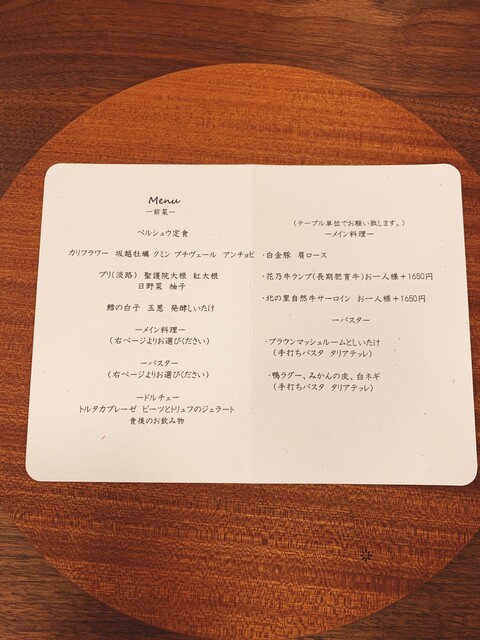 Menu
ー前菜ー
ペルシュウ定食
カリフラワー 坂越牡蠣 クミン プチヴェール アンチョビ
ブリ(淡路) 聖護院大根 紅大根
日野菜 柚子
鱈の白子 玉葱 発酵しいたけ
ーメイン料理ー
(右ページよりお選びください)
ーパスター
(右ページよりお選びください)
ードルチェー
トルタカプレーゼ ビーツとトリュフのジェラート
食後のお飲み物
(テーブル単位でお願い致します。)
ーメイン料理ー
・白金豚 肩ロース
・花乃牛ランプ(長期肥育牛)お一人様+1650円
・北の里自然牛サーロイン お一人様+1650円
ーパスター
・ブラウンマッシュルームとしいたけ
(手打ちパスタ タリアテッレ)
・鴨ラグー、みかんの皮、白ネギ
(手打ちパスタ タリアテッレ)